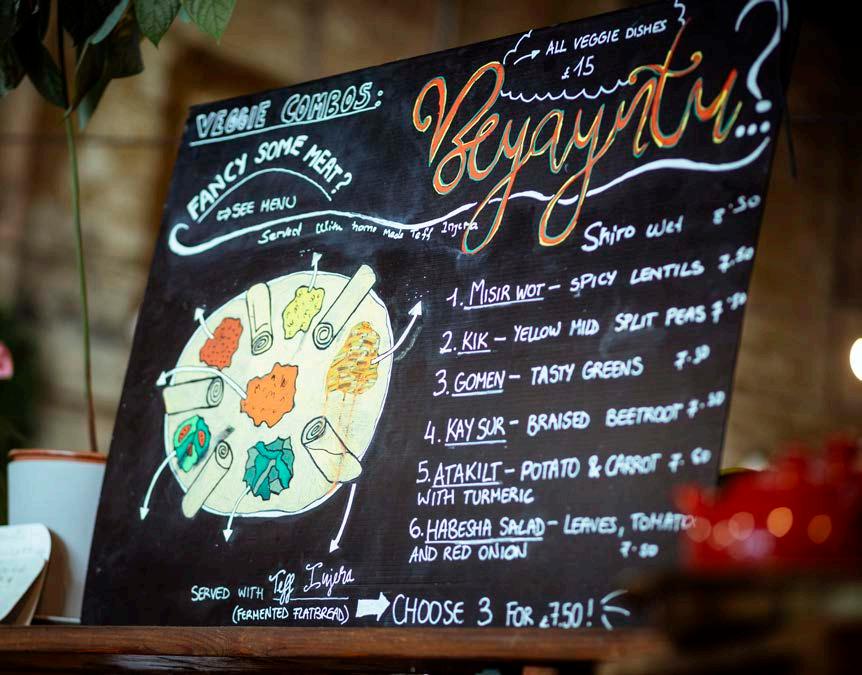 VEGGIE COMBOS:
→ ALL VEGGIE DISHES
£15
Beyayntu?...
FANCY SOME MEAT?
⇨ SEE MENU
Served With home Made Teff Injera
Shiro Wet 8.50
1. MISIR WOT - SPICY LENTILS 7.50
2. KIK - YELLOW MILD SPLIT PEAS 7.50
3. GOMEN - TASTY GREENS 7.50
4. KAY SUR - BRAISED BEETROOT 7.50
5. ATAKILT - POTATO & CARROT 7.50
WITH TURMERIC
6. HABESHA SALAD - LEAVES, TOMATO
AND RED ONION 7.50
SERVED WITH Teff Injera
(FERMENTED FLATBREAD)
➡ CHOOSE 3 FOR £7.50!